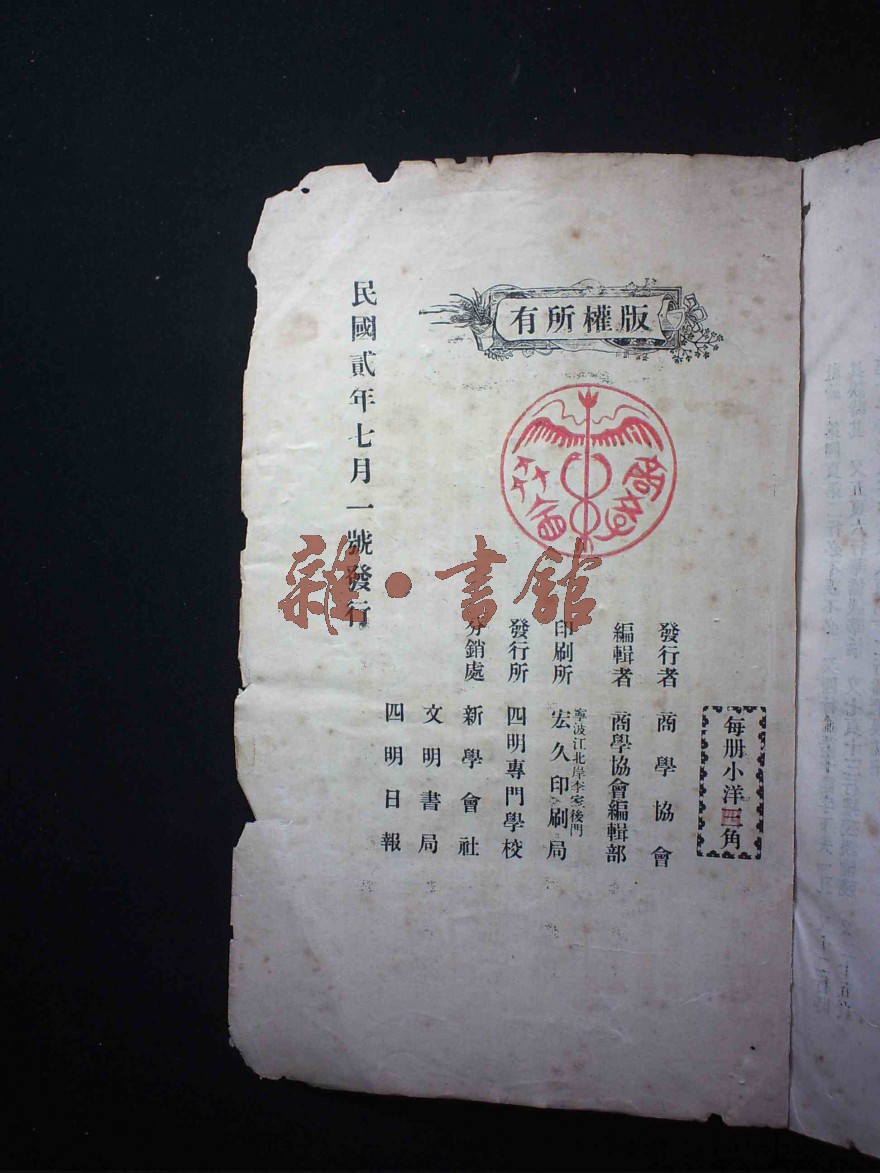 版權所有
每册小洋四角
發行者 商學協會
編輯者 商學協會編輯部
印刷所 寧波江北岸李家後門 宏久印刷局
發行所 四明專門學校
分銷處 新學會社
文明書局
四明日報
民國貳年七月一號發行
雜·書館